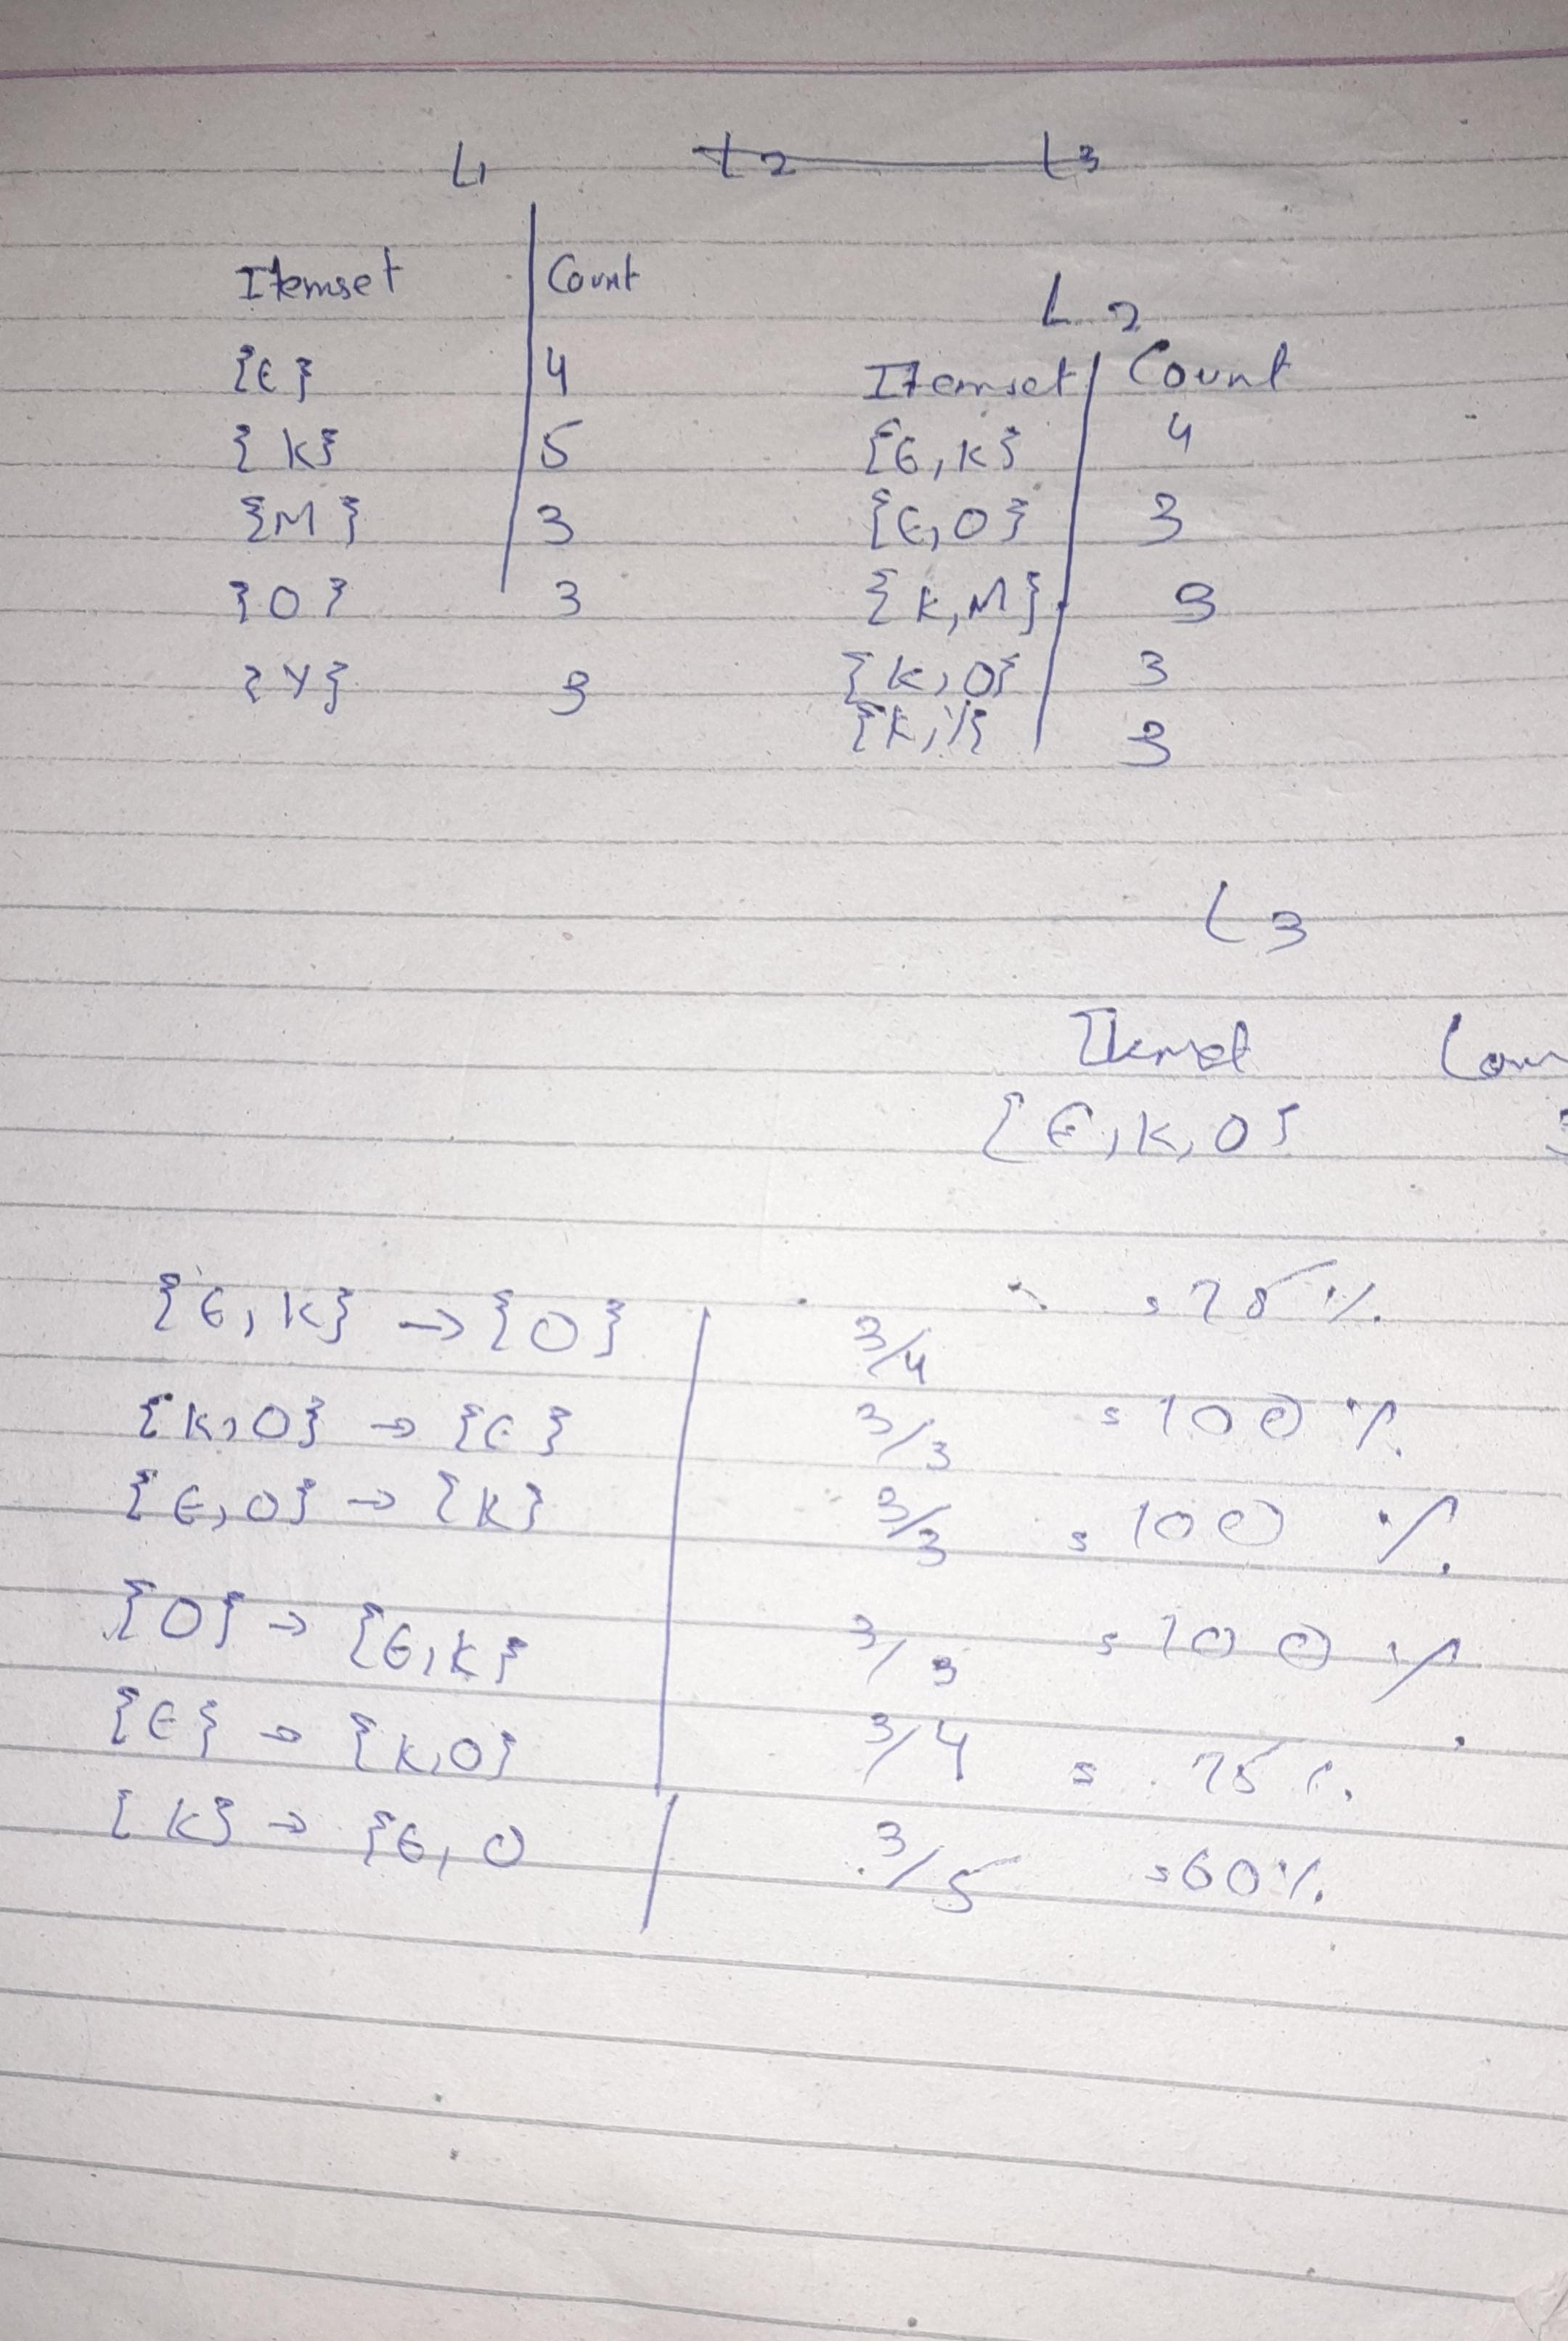 L1
L2 L3
Itemset Count
{E} 4
{K} 5
{M} 3
{O} 3
{Y} 3
L2
Itemset Count
{E,K} 4
{E,O} 3
{K,M} 3
{K,O} 3
{K,Y} 3
L3
Itemset Coun
{E,K,O} 3
{E,K} → {O} 3/4 = 75%
{K,O} → {E} 3/3 = 100%
{E,O} → {K} 3/3 = 100%
{O} → {E,K} 3/3 = 100%
{E} → {K,O} 3/4 = 75%
{K} → {E,O 3/5 = 60%